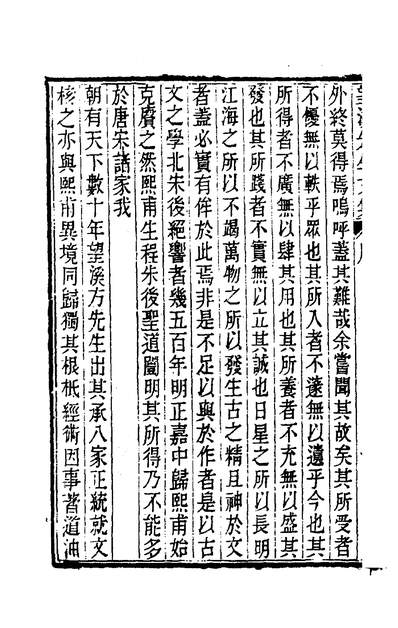 外終莫得焉嗚呼蓋其難哉余嘗聞其故矣其所受者
不優無以軼乎眾也其所入者不邃無以遺乎今也其
所得者不廣無以肆其用也其所養者不充無以盛其
發也其所踐者不實無以立其誠也日星之所以長明
江海之所以不竭萬物之所以發生古之精且神於文
者蓋必實有侔於此焉非是不足以與於作者是以古
文之學北宋後絕響者幾五百年明正嘉中歸熙甫始
克賡之然熙甫生程朱後聖道闡明其所得乃不能多
於唐宋諸家我
朝有天下數十年望溪方先生出其承八家正統就文
核之亦與熙甫異境同歸獨其根柢經術因事著道油